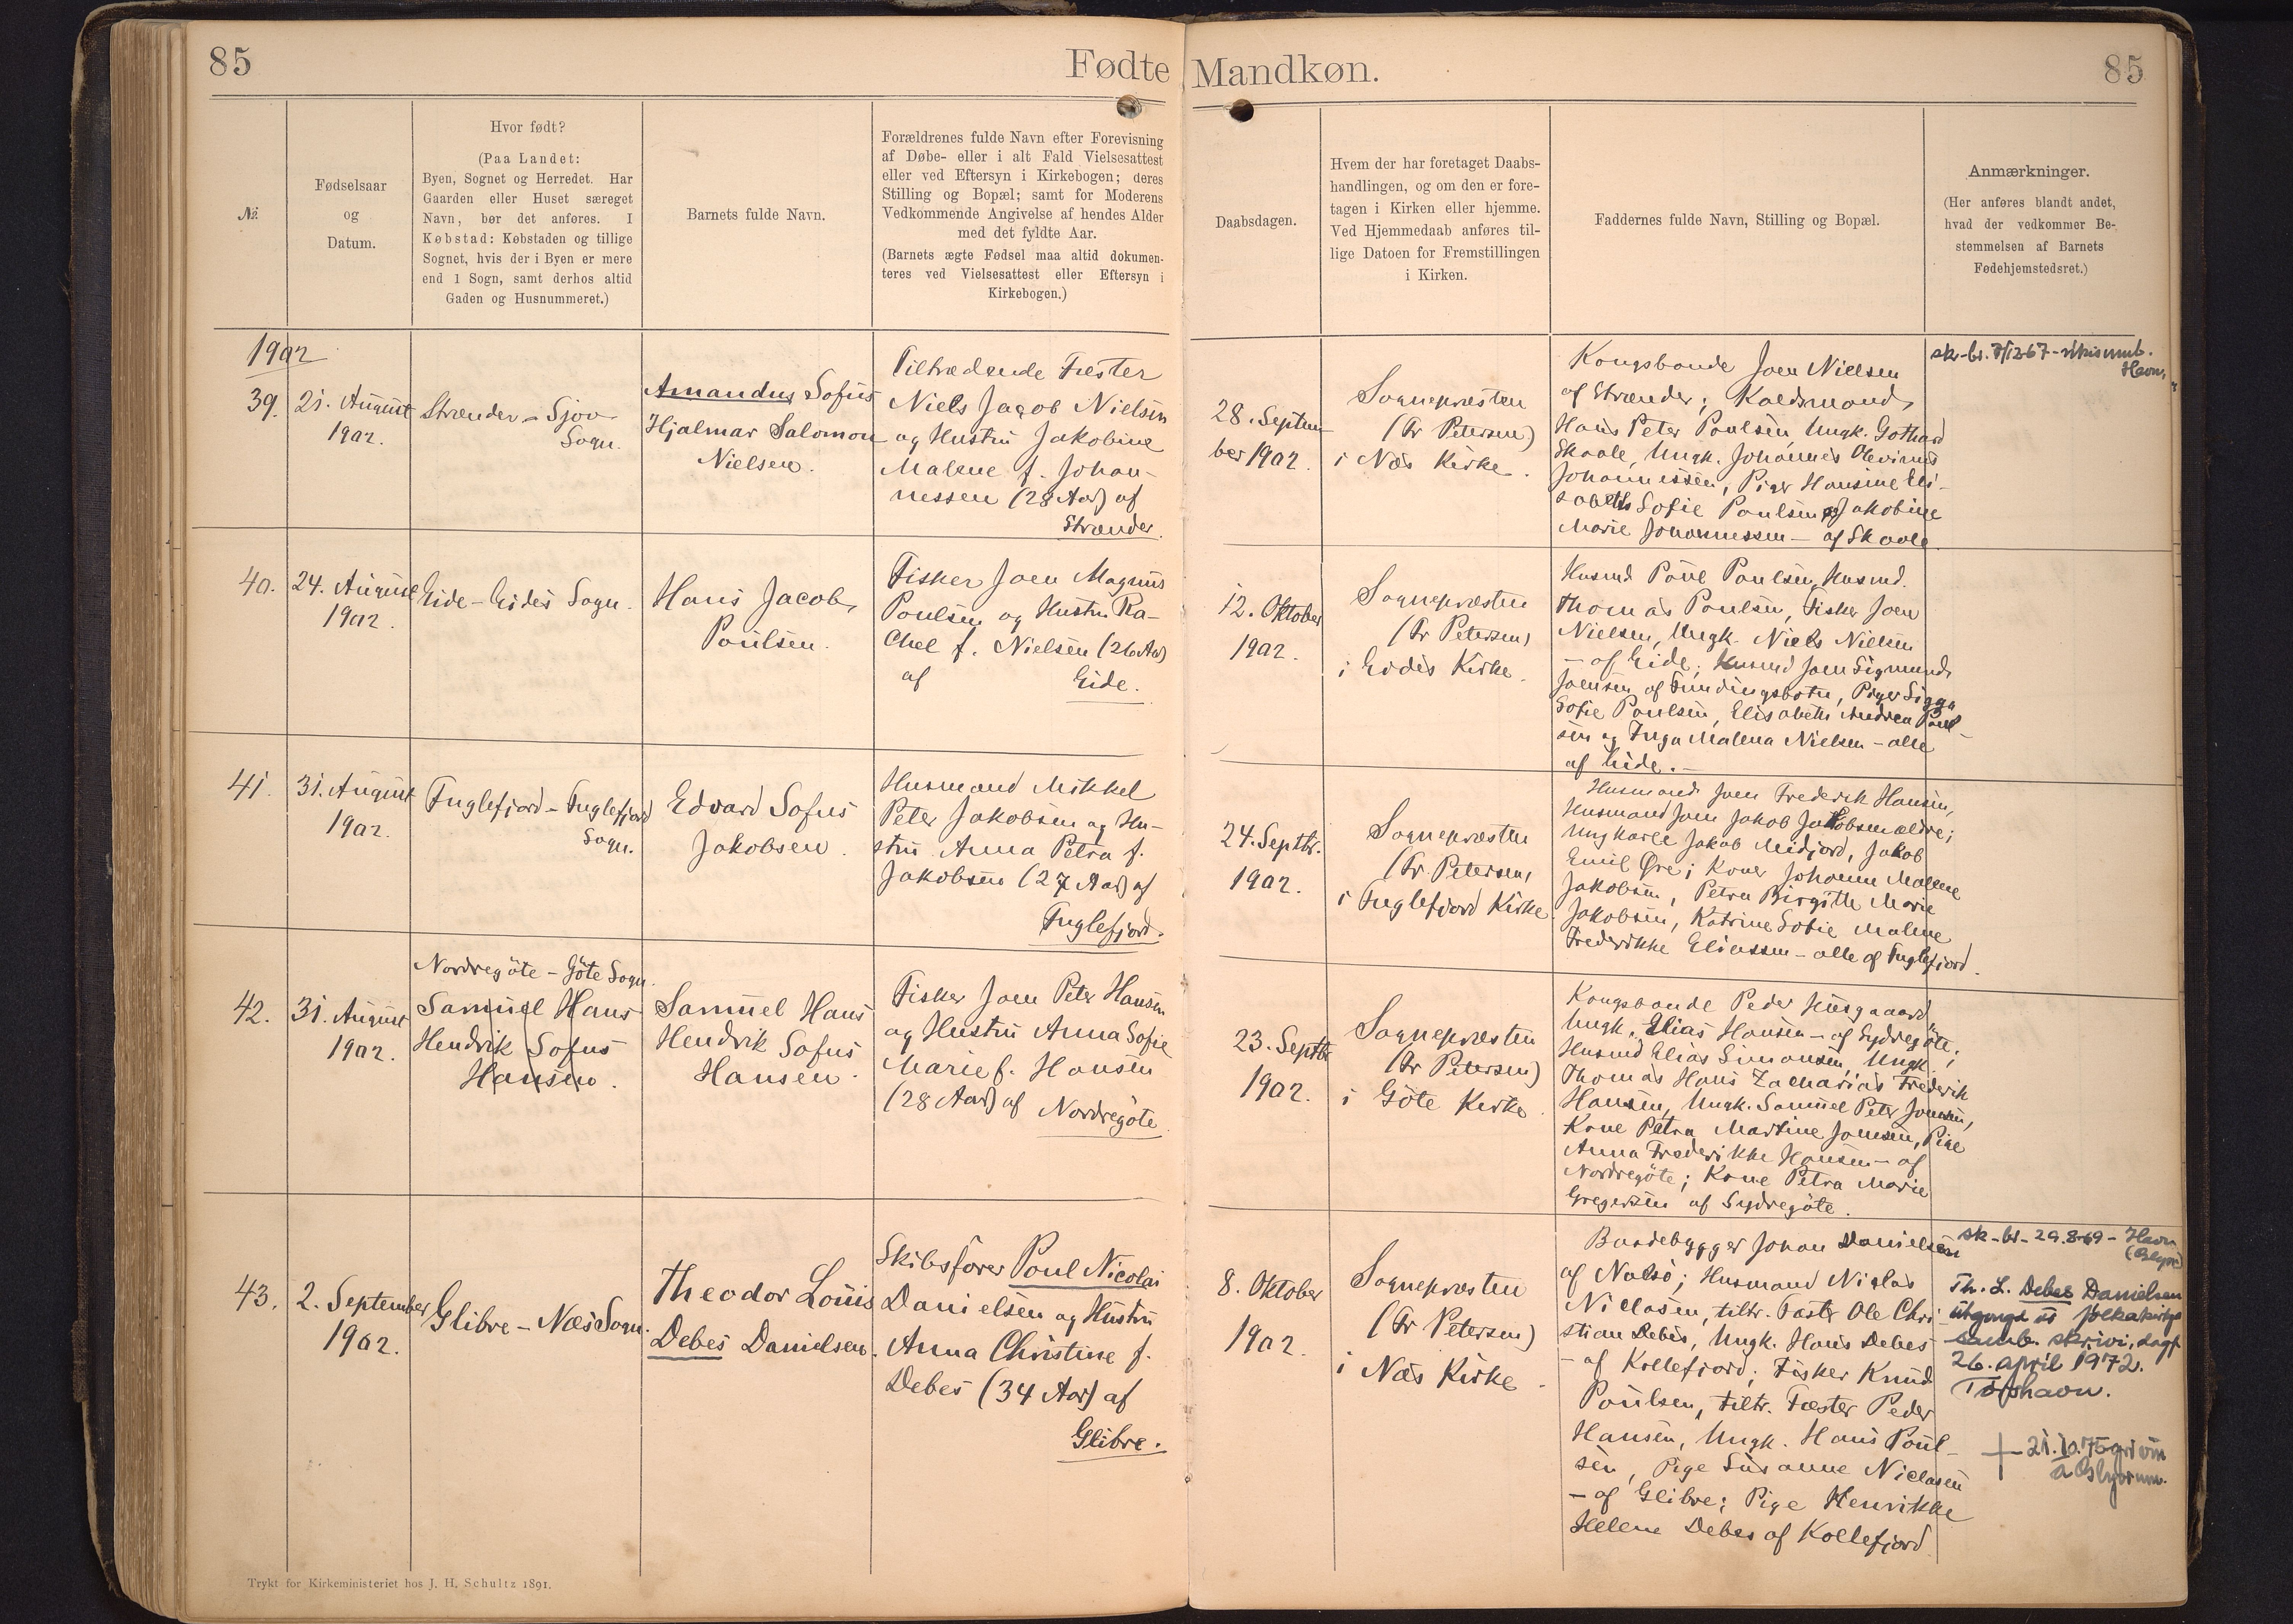 85
Fødte
Mandkøn.
85
№.
Fødselsaar
og
Datum.
Hvor født?
(Paa Landet:
Byen, Sognet og Herredet. Har
Gaarden eller Huset særeget
Navn, bør det anføres. I
Købstad: Købstaden og tillige
Sognet, hvis der i Byen er mere
end 1 Sogn, samt derhos altid
Gaden og Husnummeret.)
Barnets fulde Navn.
Forældrenes fulde Navn efter Forevisning
af Døbe- eller i alt Fald Vielsesattest
eller ved Eftersyn i Kirkebogen; deres
Stilling og Bopæl; samt for Moderens
Vedkommende Angivelse af hendes Alder
med det fyldte Aar.
(Barnets ægte Fødsel maa altid dokumen-
teres ved Vielsesattest eller Eftersyn i
Kirkebogen.)
Daabsdagen.
Hvem der har foretaget Daabs-
handlingen, og om den er fore-
tagen i Kirken eller hjemme.
Ved Hjemmedaab anføres til-
lige Datoen for Fremstillingen
i Kirken.
Faddernes fulde Navn, Stilling og Bopæl.
Anmærkninger.
(Her anføres blandt andet,
hvad der vedkommer Be-
stemmelsen af Barnets
Fødehjemstedsret.)
1902
39.
21. August
1902.
Strænder - Sjov
Sogn.
Amandus Sofus
Hjalmar Salomon
Nielsen.
Tiltrædende Fæster
Niels Jacob Nielsen
og Hustru Jakobine
Malene f. Johan-
nessen (28 Aar) af
Strænder.
28. Septem-
ber 1902.
Sognepræsten
(Fr Petersen)
i Næs Kirke.
Kongsbonde Joen Nielsen
af Strænder; Husmand
Hans Peter Poulsen, Ungk. Gothard
Skaale, Ungk. Johannes Olevinus
Johannessen, Piger Hansine Eli-
sabeth Sofie Poulsen og Jakobine
Marie Johannessen - af Skaale.
sk-br. 7/12 67
Havn.
40.
24. August
1902.
Eide - Eides Sogn.
Hans Jacob
Poulsen.
Fisker Joen Magnus
Poulsen og Hustru Ra-
chel f. Nielsen (26 Aar)
af Eide.
12. Oktober
1902.
Sognepræsten
(Fr Petersen)
i Eides Kirke.
Husmd Poul Poulsen, Husmd.
Thomas Poulsen, Fisker Joen
Nielsen, Ungk. Niels Nielsen
- af Eide; Husmd Joen Sigmund
Joensen af Fundingsbotn, Piger Sigga
Sofie Poulsen, Elisabeth Andrea Poul-
sen og Inga Malena Nielsen - alle
af Eide.-
41.
31. August
1902.
Fuglefjord - Fuglefjord
Sogn.
Edvard Sofus
Jakobsen.
Husmand Mikkel
Peter Jakobsen og Hu-
stru Anna Petra f.
Jakobsen (27 Aar) af
Fuglefjord.
24. Septbr.
1902.
Sognepræsten
(Fr Petersen)
i Fuglefjord Kirke.
Husmand Joen Frederik Hansen,
Husmand Joen Jakob Jakobsen ældre;
Ungkarle Jakob Midjord, Jakob
Emil Øre; Koner Johanne Malene
Jakobsen, Petra Birgitte Marie
Jakobsen, Katrine Sofie Malene
Frederikke Eliassen - alle af Fuglefjord.
42.
31. August
1902.
Nordregöte - Göte Sogn.
Samuel Hans
Hendrik Sofus
Hansen.
Samuel Hans
Hendrik Sofus
Hansen.
Fisker Joen Peter Hansen
og Hustru Anna Sofie
Marie f. Hansen
(28 Aar) af Nordregöte.
23. Septbr
1902.
Sognepræsten
(Fr Petersen)
i Göte Kirke.
Kongsbonde Peder Husgaard,
Ungk. Elias Hansen - af Sydregöte;
Husmd Elias Simonsen, Ungk.
Thomas Hans Zacharias Frederik
Hansen, Ungk. Samuel Peter Joensen,
Kone Petra Martine Joensen, Pige
Anna Frederikke Hansen - af
Nordregöte; Kone Petra Marie
Gregersen af Sydregöte.
43.
2. September
1902.
Glibre - Næs Sogn.
Theodor Louis
Debes Danielsen.
Skibsfører Poul Nicolai
Danielsen og Hustru
Anna Christine f.
Debes (34 Aar) af
Glibre.
8. Oktober
1902.
Sognepræsten
(Fr Petersen)
i Næs Kirke.
Baadebygger Johan Danielsen
af Nolsö; Husmand Niclas
Niclasen, tiltr. Fæster Ole Chri-
stian Debes, Ungk. Hans Debes
- af Kollefjord; Fisker Knud
Poulsen, tiltr. Fæster Peder
Hansen, Ungk. Hans Poul-
sen, Pige Susanne Niclasen
- af Glibre; Pige Henrikke
Helene Debes af Kollefjord.
sk-br-29.8-69 - Havn
Th. L. Debes Danielsen
útgongd úr fólkakirkju
samb. skrivi, dagf.
26. april 1972.
Tórshavn.
+ 21.10.75
á Glyvrum.
Trykt for Kirkeministeriet hos J. H. Schultz 1891.